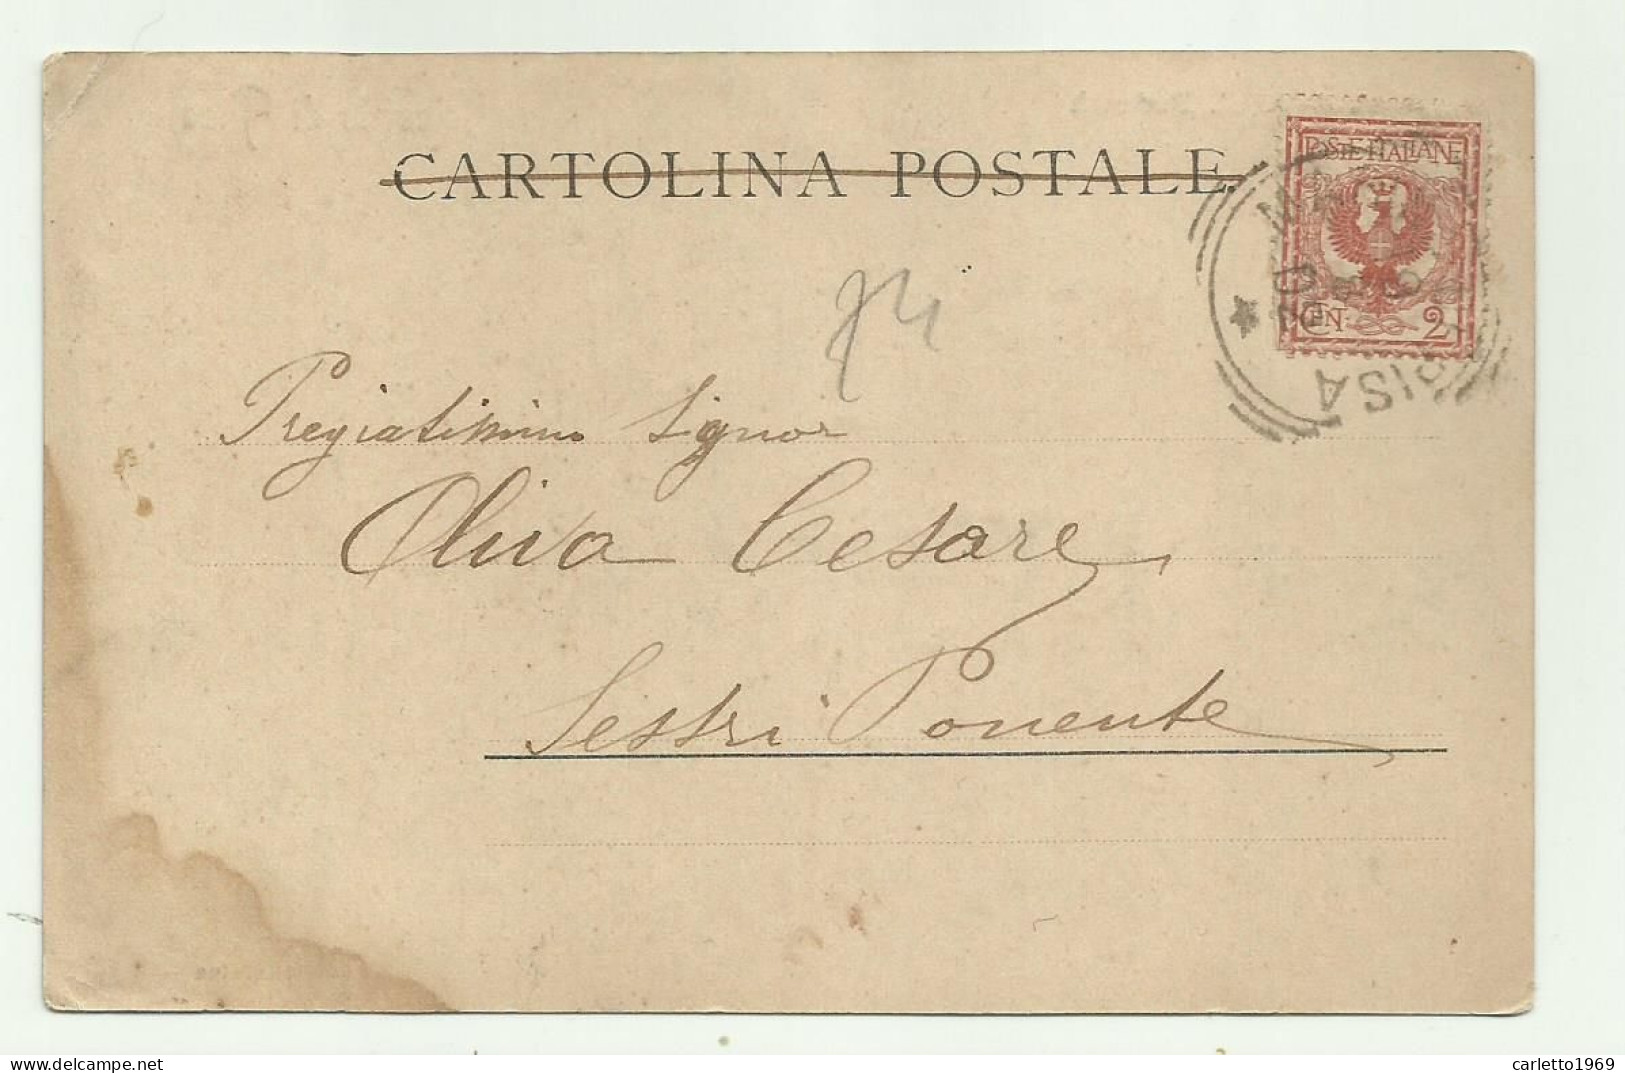 CARTOLINA POSTALE
POSTE ITALIANE
CEN. 2
PISA
74
Pregiatissimo Signor
Oliva Cesare
Sestri Ponente
delcampe.net
carletto1969